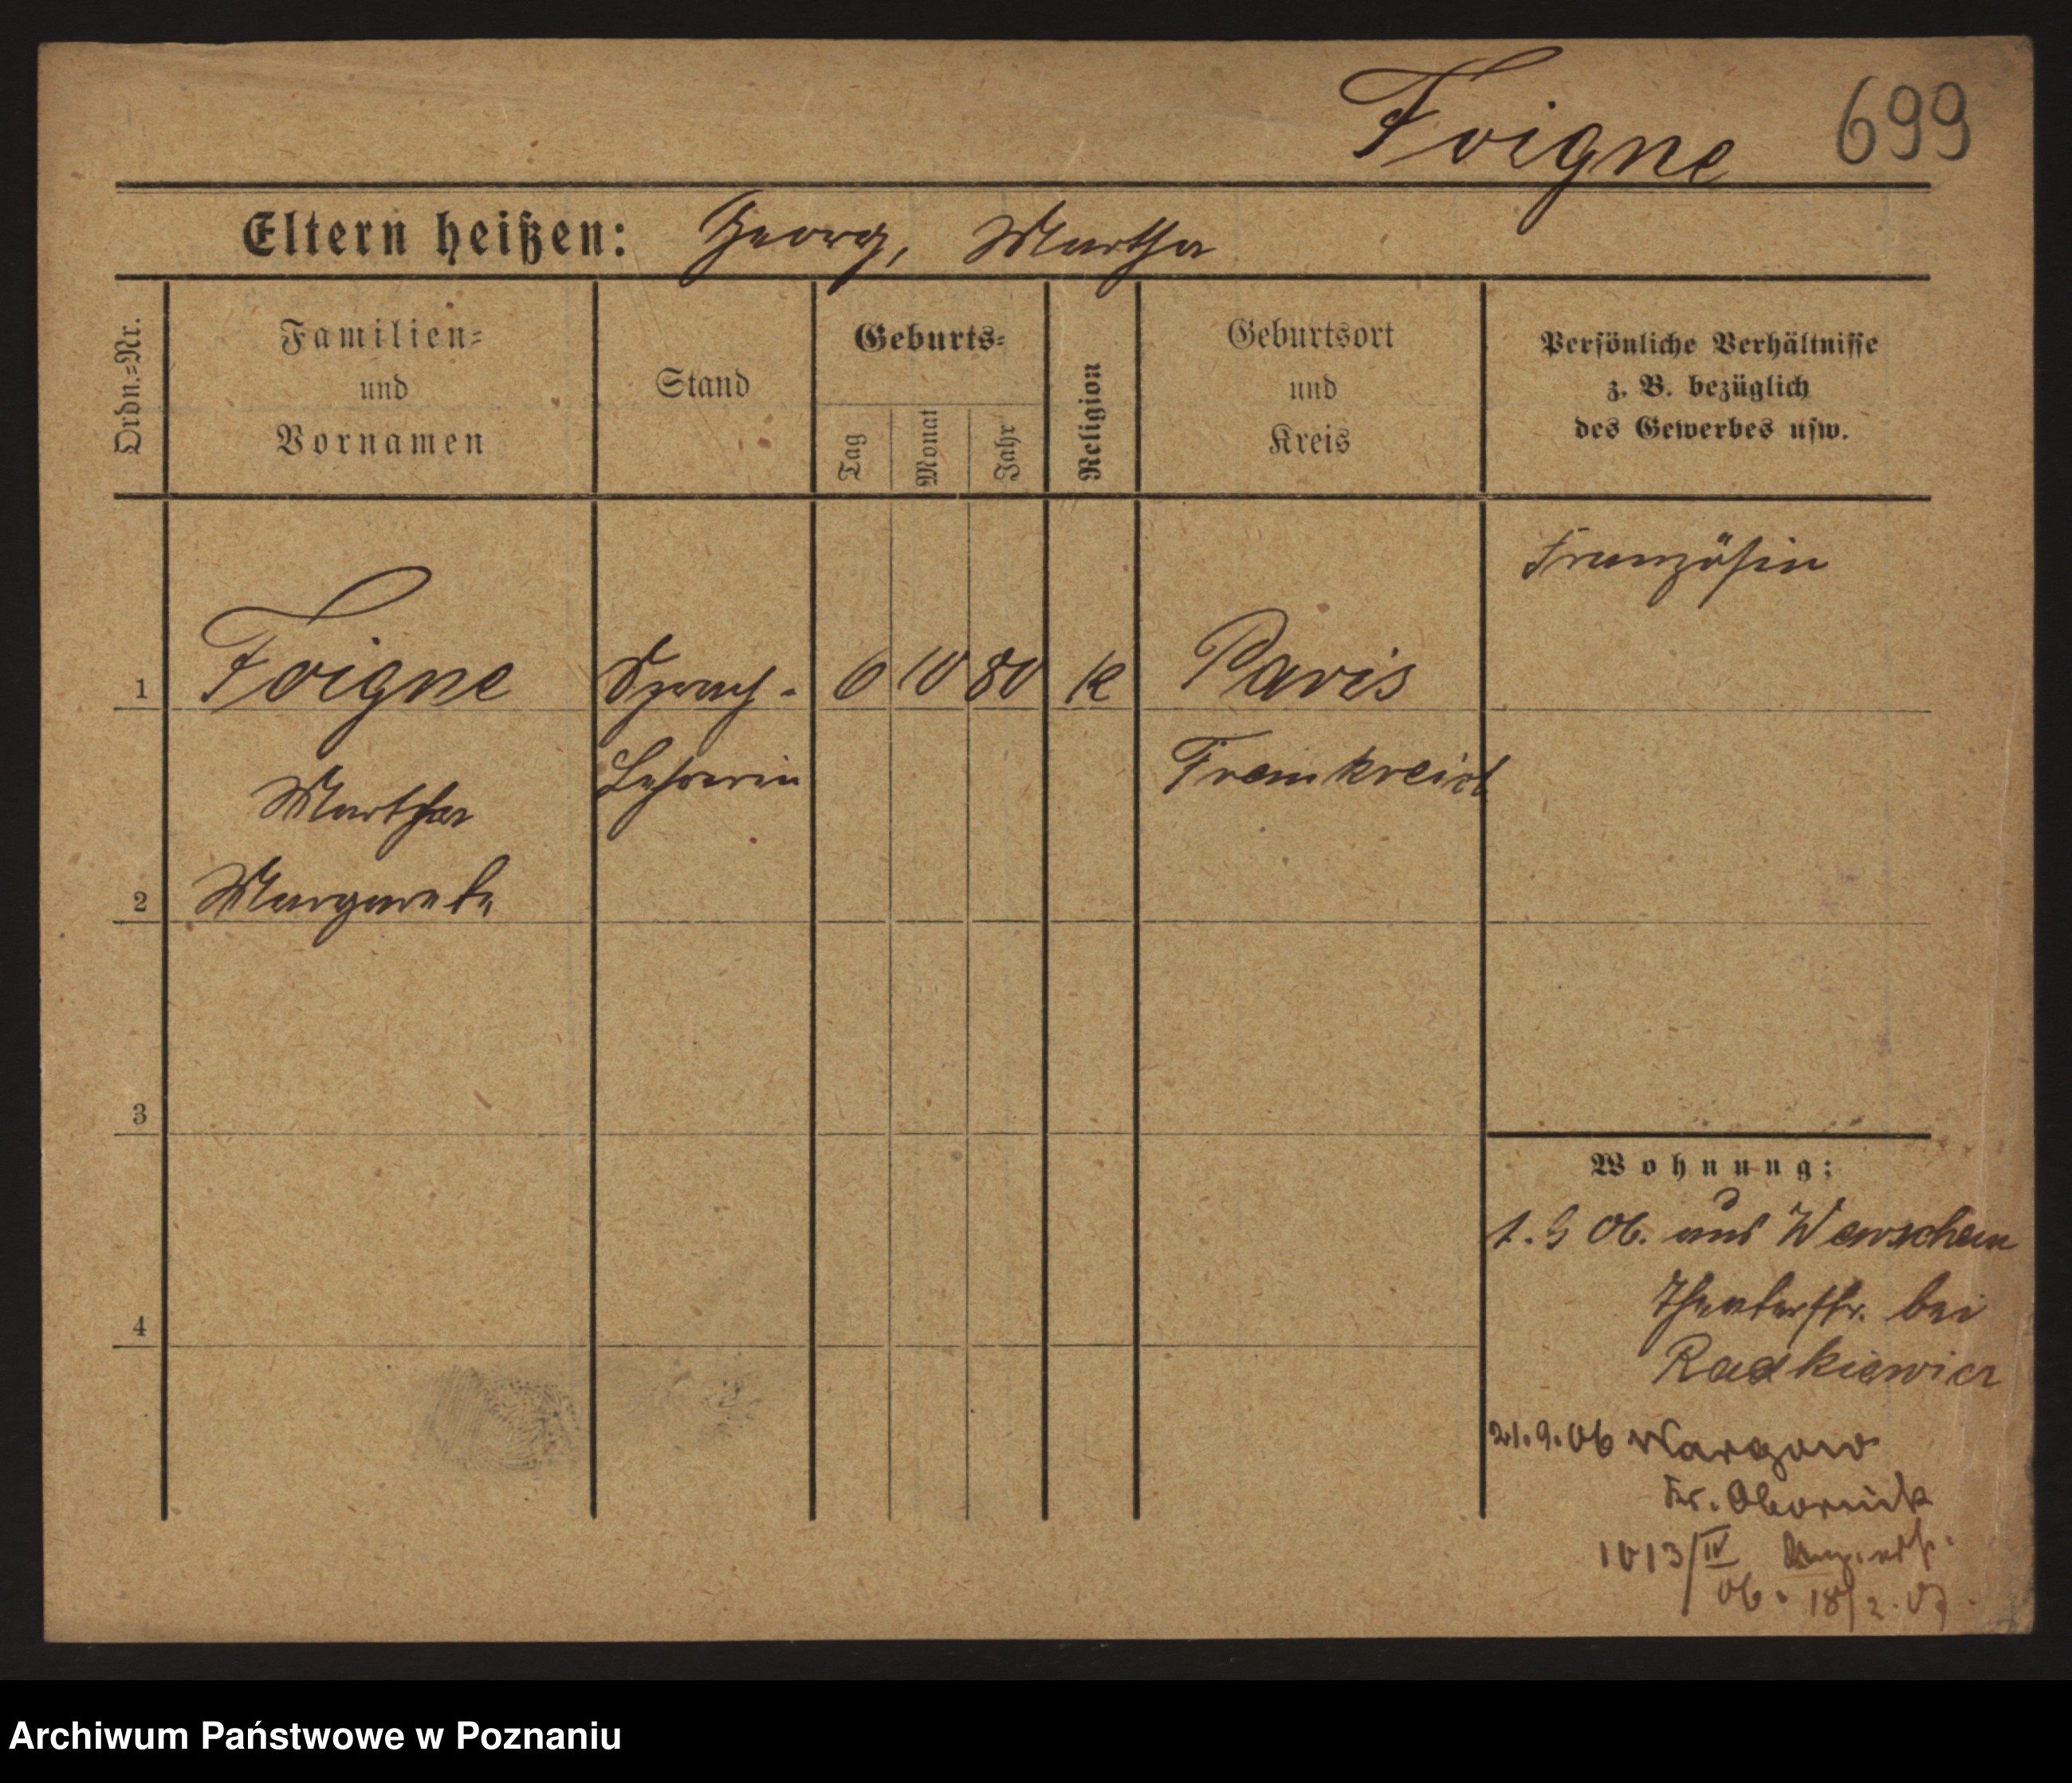 Foigne 699
Eltern heißen: Georg, Martha
Ordn.=Nr.
Familien=
und
Vornamen
Stand
Geburts=
Tag
Monat
Jahr
Religion
Geburtsort
und
Kreis
Persönliche Verhältnisse
z. B. bezüglich
des Gewerbes usw.
Französin
1 Foigne Sprach- 6 10 80 K Paris
Lehrerin Frankreich
Martha
2 Margarete
3
4
Wohnung:
1. 9 06. aus Warschau
Theaterstr. bei
Radkiewicz
21.9.06 Wargowo
Kr. Obornick
1013/IV
06. 18/2.07.
Archiwum Państwowe w Poznaniu